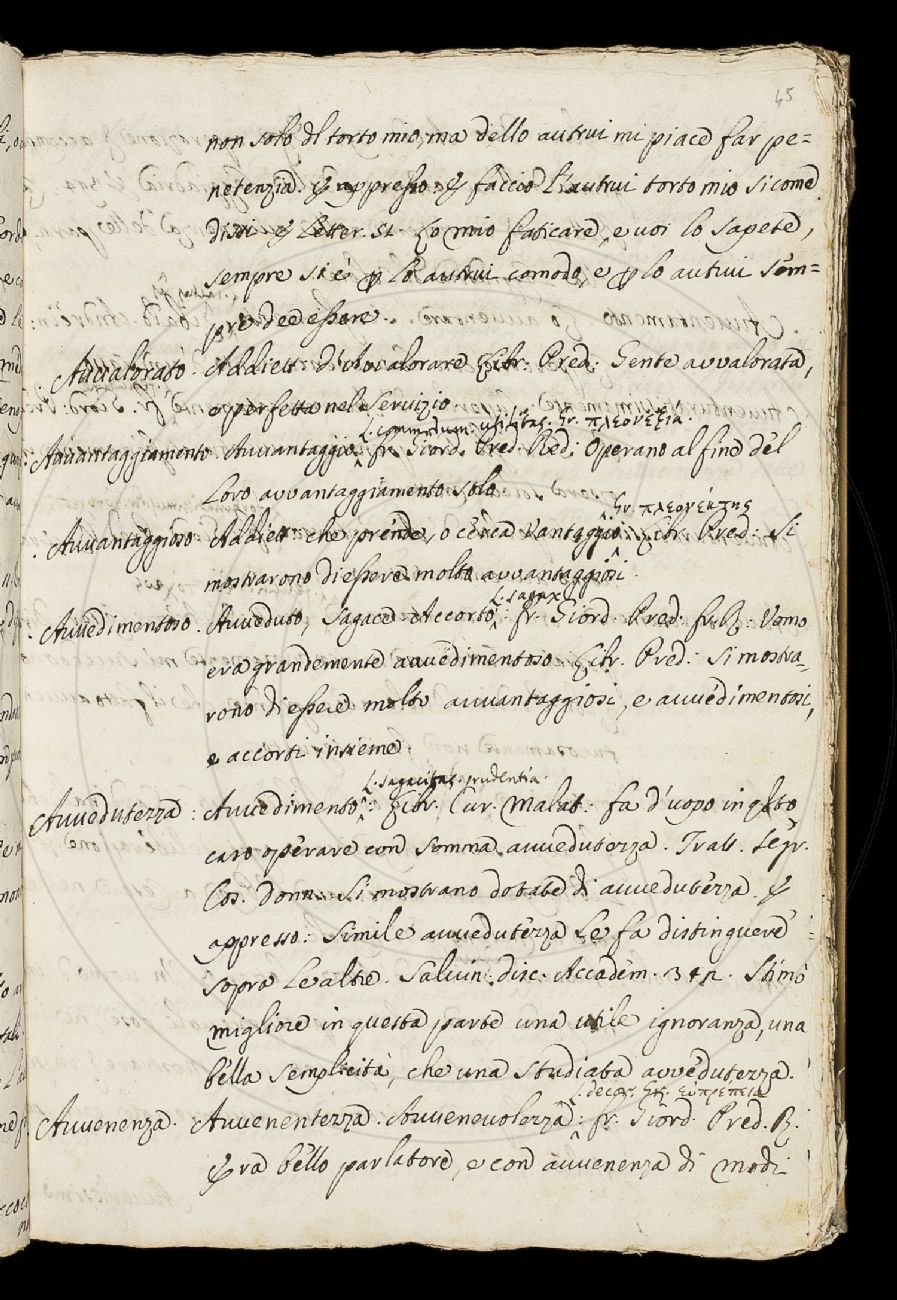 45
non solo dl torto mio, ma dello autrui mi piace far pe=
netenzia. E appresso: E faccio l'autrui torto mio sicome
dissi e Letter. St. Lo mio faticare, e voi lo sapete,
sempre si è p lo autrui comodo, e p lo autrui sem=
pre dee essere.
Auvalorato. Addiett. d'Avvalorare Libr. Pred: Gente avvalorata,
e perfetta nel servizio
L. commodum. utilitas. Gr. πλεονεξία.
Auvantaggiamento. Auvantaggio. fr. Giord. Pred. Red: Operano al fine del
Loro avvantaggiamento solo
Gr. πλεονέκτης
Auvantaggioso Addiett. che prende, o cerca vantaggio: Libr. Pred: Si
mostrarono di essere molto avvantaggiosi.
L. sagax
Auvedimentoso. Auveduto, Sagace Accorto: fr. Giord. Pred. fr. R: Vomo
era grandemente auvedimentoso. Libr. Pred: Si mostra-
rono di essere molto auvantaggiosi, e auvedimentosi,
e accorti insieme.
L. sagacitas. prudentia.
Auvedutezza: Auvedimento: Libr. Cur. Malat: fa d'uopo in qsto
caso operare con somma auvedutezza. Tratt. Segr.
Cos. Donn. Si mostrano dotate di auvedutezza. E
appresso: Simile auvedutezza Le fa distinguere
sopra Le altre. Salvin: disc. Accadem. 3 + n. Stimò
migliore in questa parte una utile ignoranza, una
bella semplicità, che una studiata avvedutezza.
L. decor. Gr. εὐπρέπεια
Auvenenza. Auvenentezza. Auvenevolezza: fr. Giord. Pred. R.
Era bello parlatore, e con auvenenza di modi